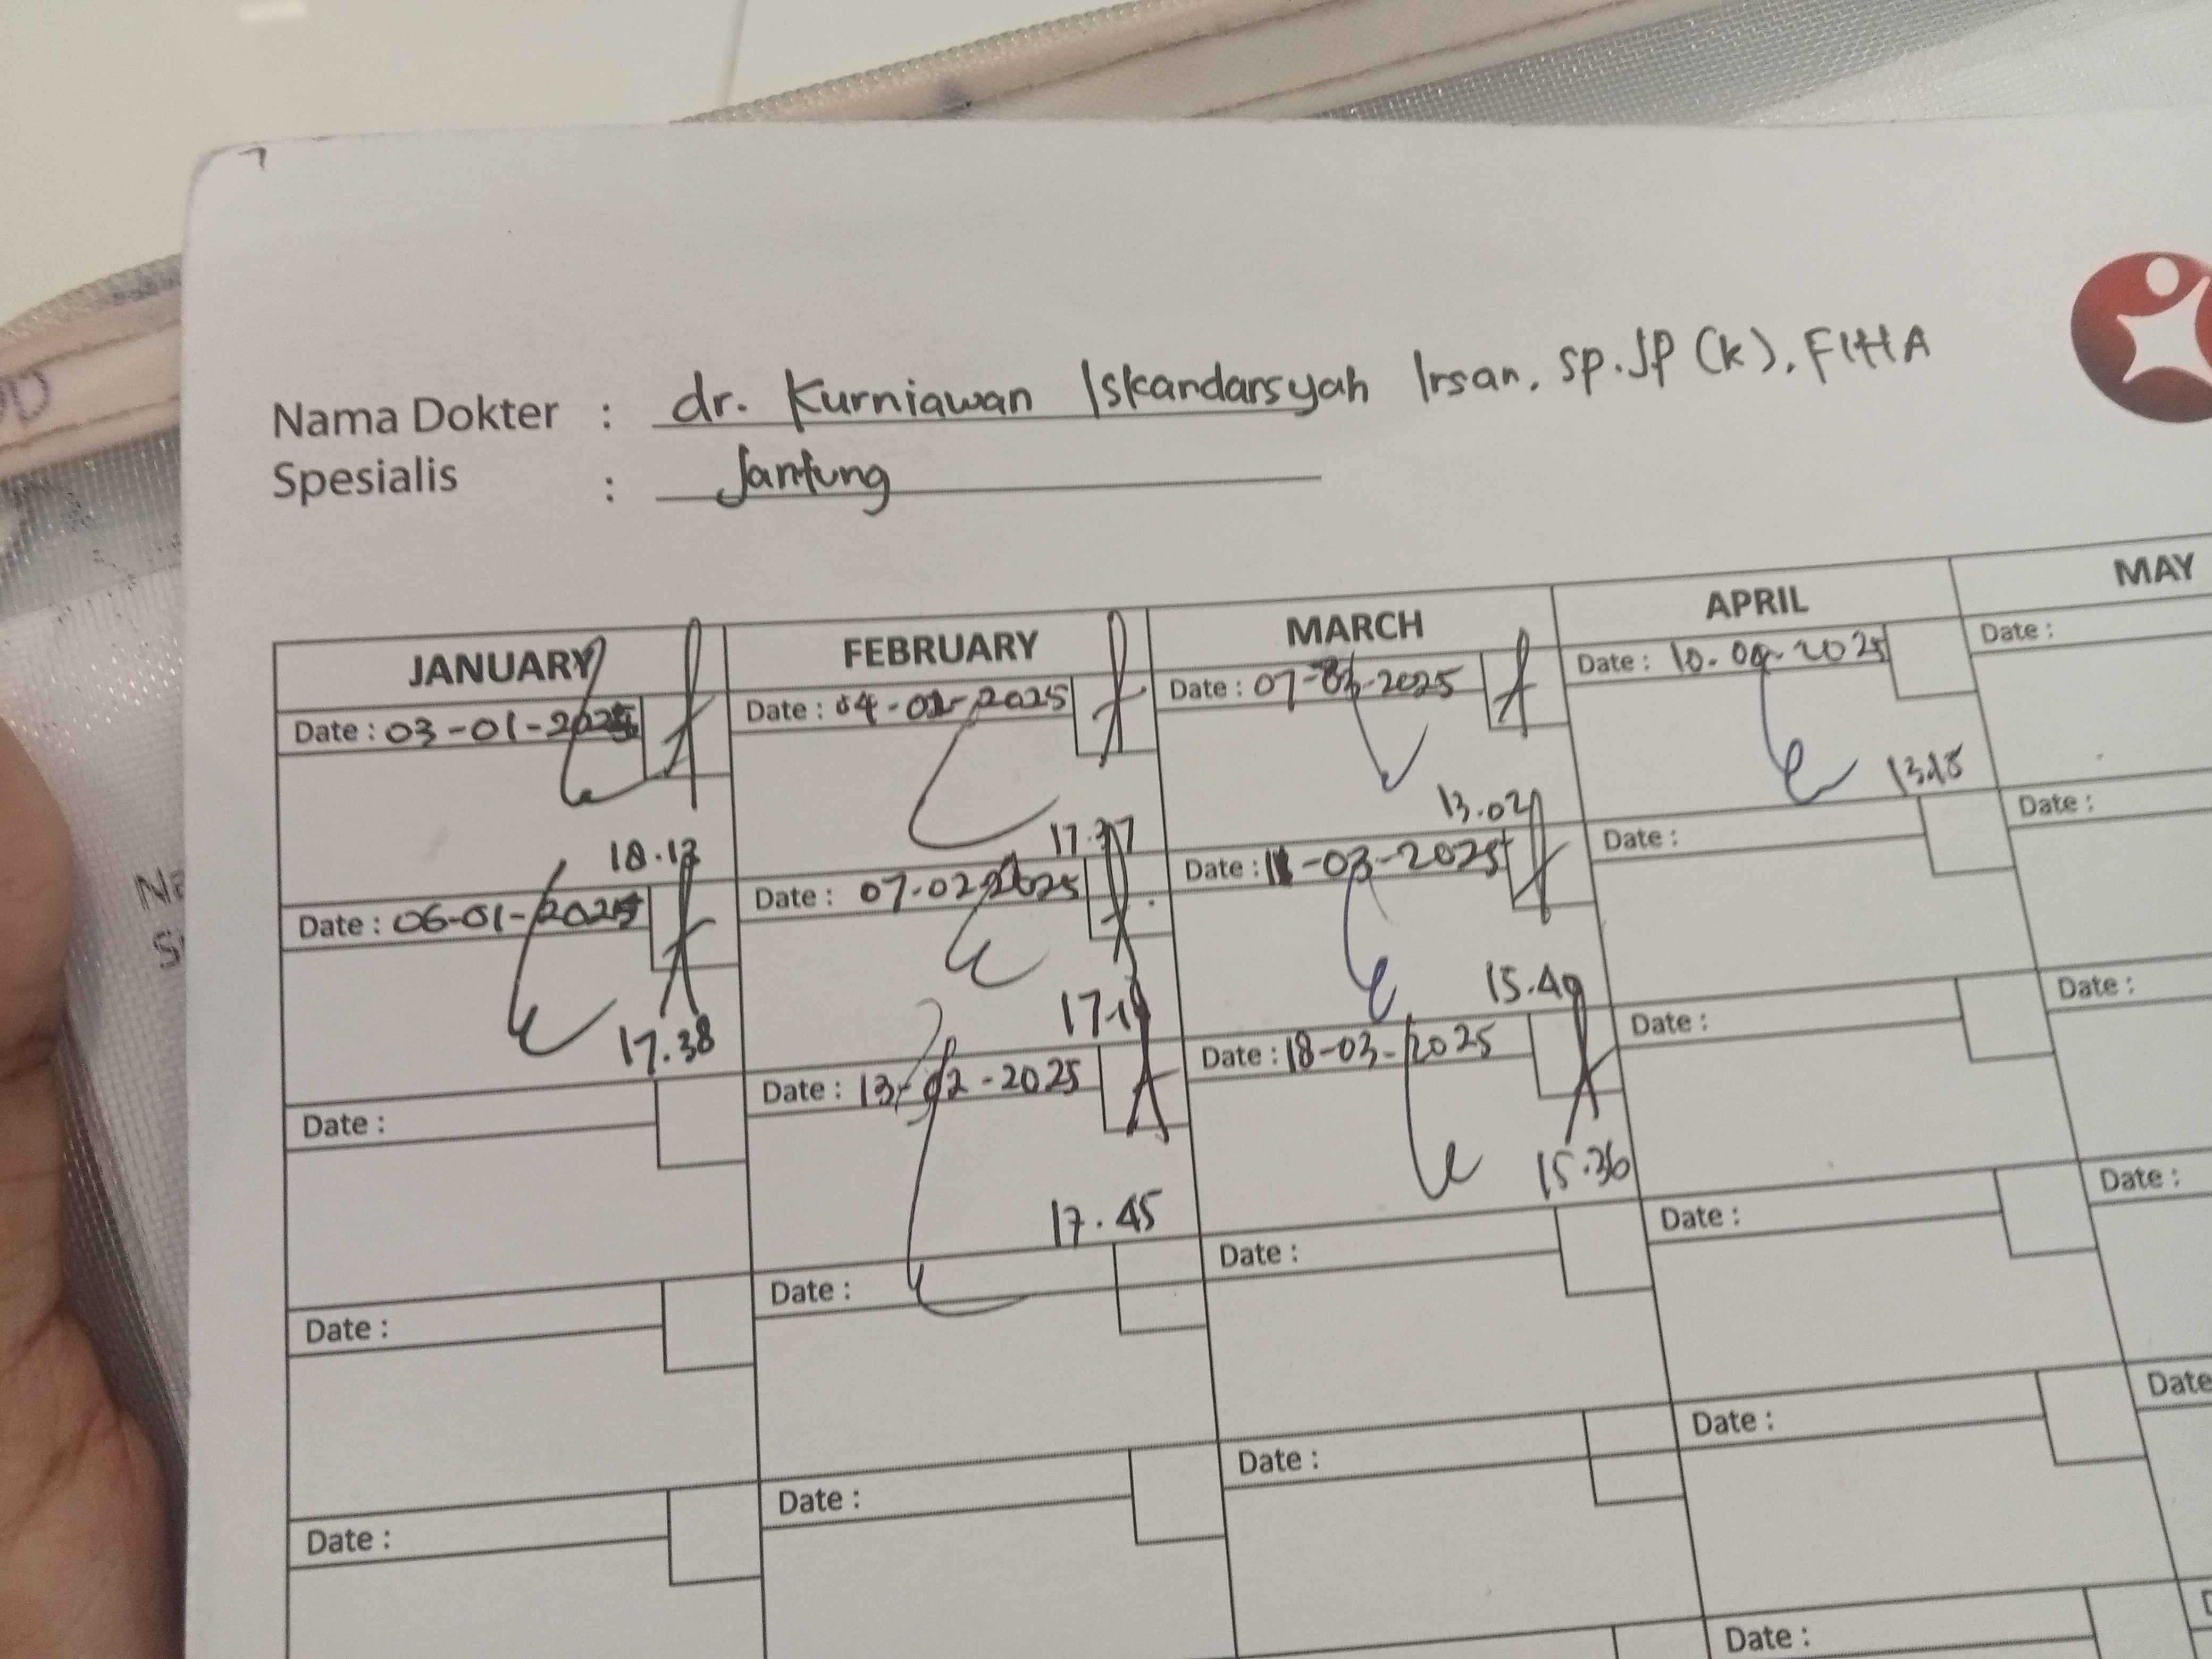 Nama Dokter : dr. Kurniawan Iskandarsyah Irsan, Sp.JP (K), FIHA
Spesialis : Jantung
JANUARY FEBRUARY MARCH APRIL MAY
Date : 03-01-2025 Date : 04-02-2025 Date : 07-03-2025 Date : 10-04-2025 Date :
18.12 17.37 13.02 13.18
Date : 06-01-2025 Date : 07-02-2025 Date : 11-03-2025 Date : Date :
17.38 15.49
Date : Date : 13-02-2025 Date : 18-03-2025 Date : Date :
17.45 15.36
Date : Date : Date : Date : Date :
Date : Date : Date : Date : Date
Date :